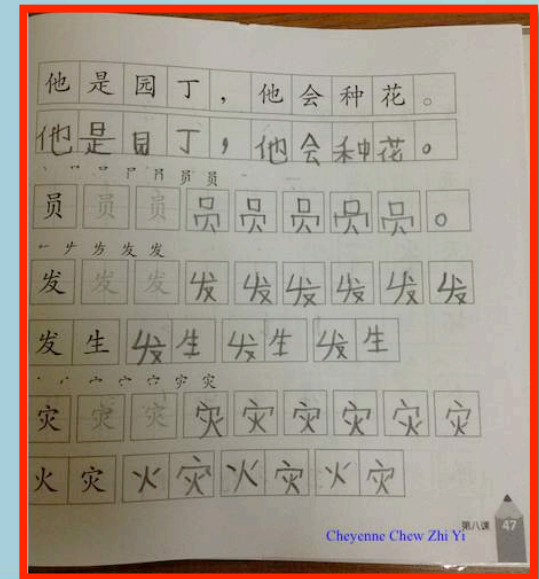 他是园丁，他会种花。
他是园丁，他会种花。
员员员员员员员员。
发发发发发发发发发
发生发生发生发生
灾灾灾灾灾灾灾灾灾
火灾火灾火灾火灾
第八课 47
Cheyenne Chew Zhi Yi